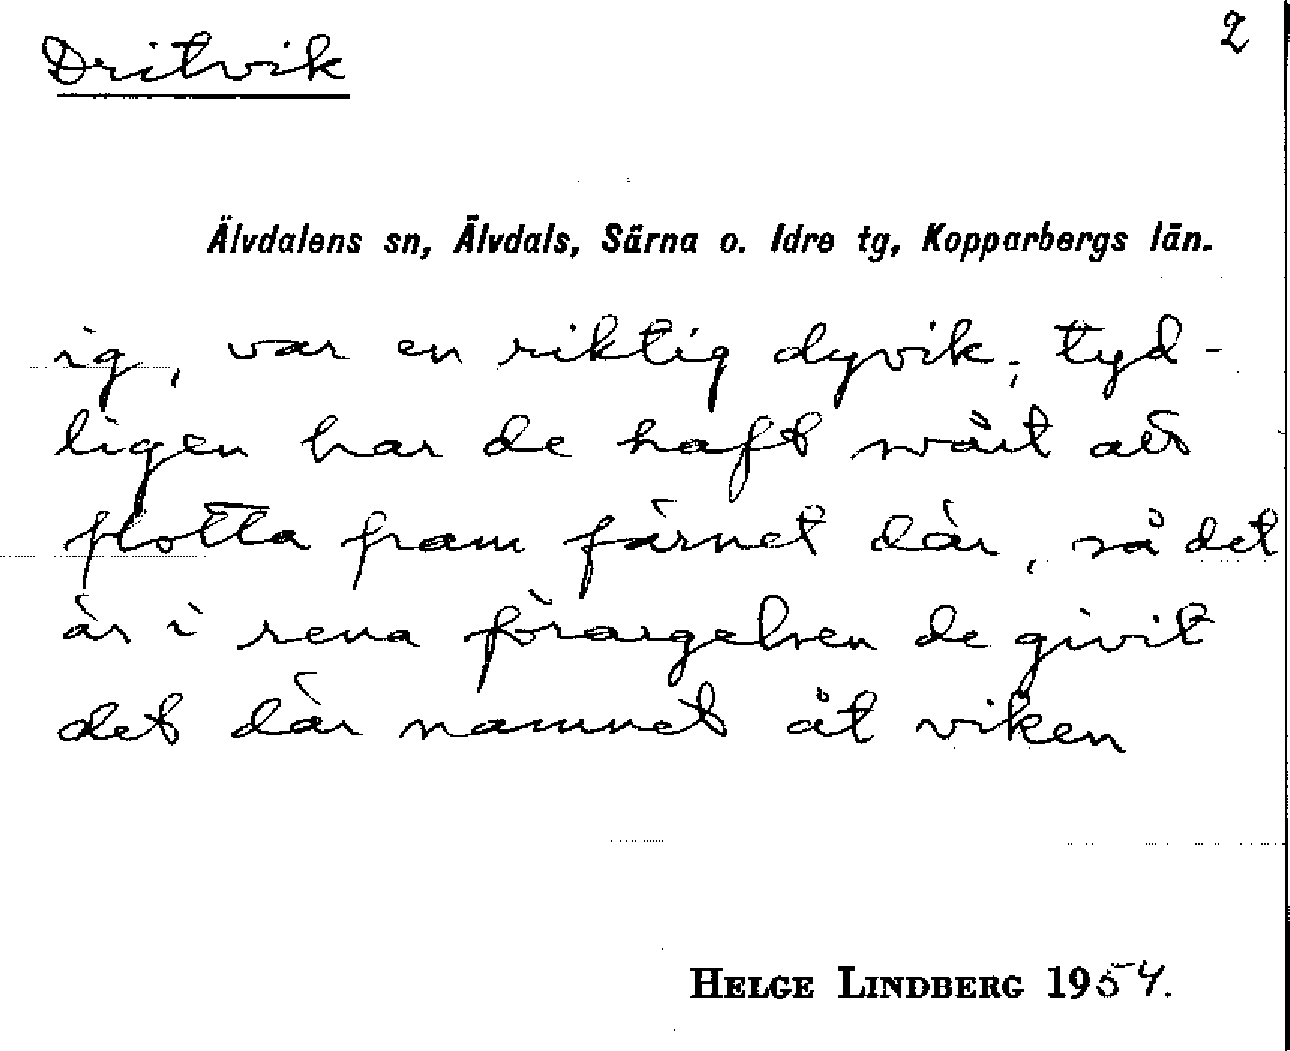 Dritvik 2
Älvdalens sn, Älvdals, Särna o. Idre tg, Kopparbergs län.
ig, var en riktig dyvik; tyd-
ligen har de haft svårt att
flotta fram färnet där, så det
är i rena förargelsen de givit
det där namnet åt viken
HELGE LINDBERG 1954.